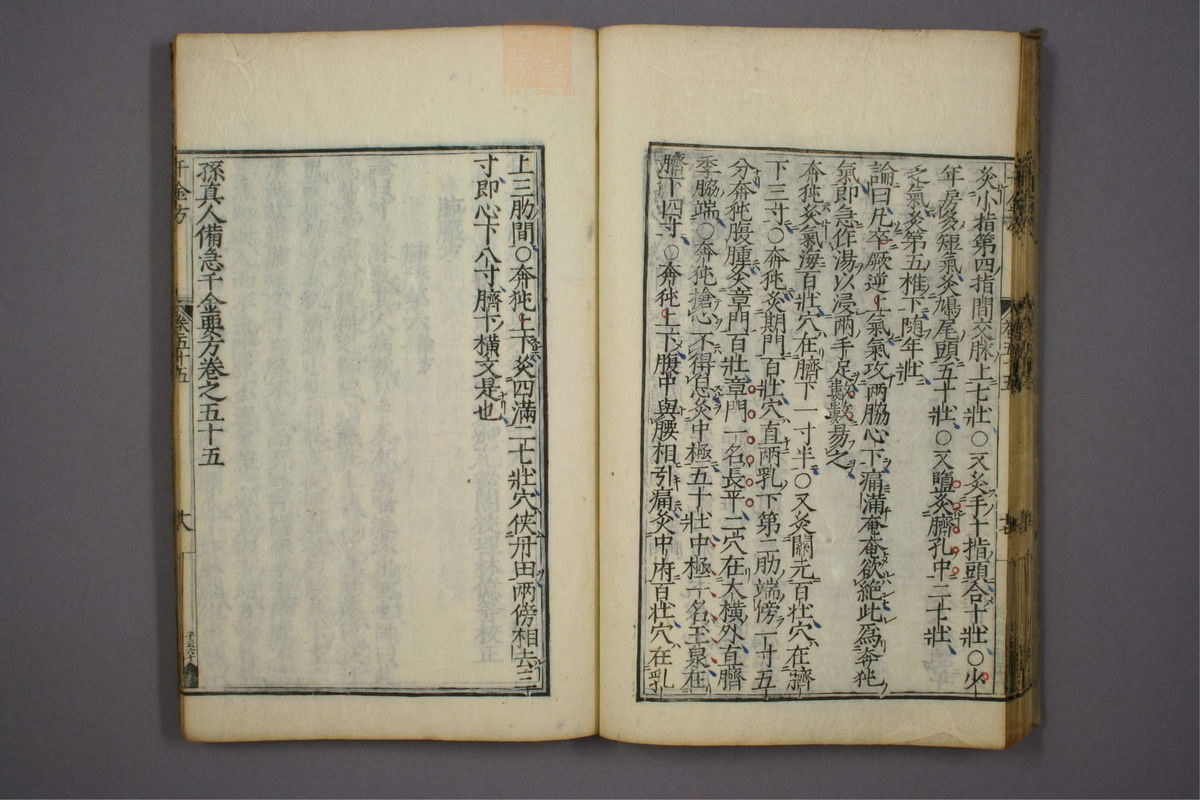 灸小指第四指間交脉上七壯○又灸手十指頭合十壯○少
年房多短氣灸鳩尾頭五十壯○又鹽灸臍孔中二七壯
乏氣灸第五椎下随年壯
論曰凡卒厥逆上氣氣攻两脇心下痛滿奄奄欲絶此爲奔㹠
氣即急作湯以浸两手足數數易之
奔㹠灸氣海百壯穴在臍下一寸半○又灸關元百壯穴在臍
下三寸○奔㹠灸期門百壯穴直两乳下第二肋端傍一寸五
分奔㹠腹腫灸章門百壯章門一名長平二穴在大横外直臍
季脇端○奔㹠搶心不得息灸中極五十壯中極一名玉泉在
臍下四寸○奔㹠上下腹中與腰相引痛灸中府百壯穴在乳
上三肋間○奔㹠上下灸四滿二七壯穴俠丹田两傍相去三
寸即心下八寸臍下横文是也
孫真人備急千金要方卷之五十五
千金方 卷五十五